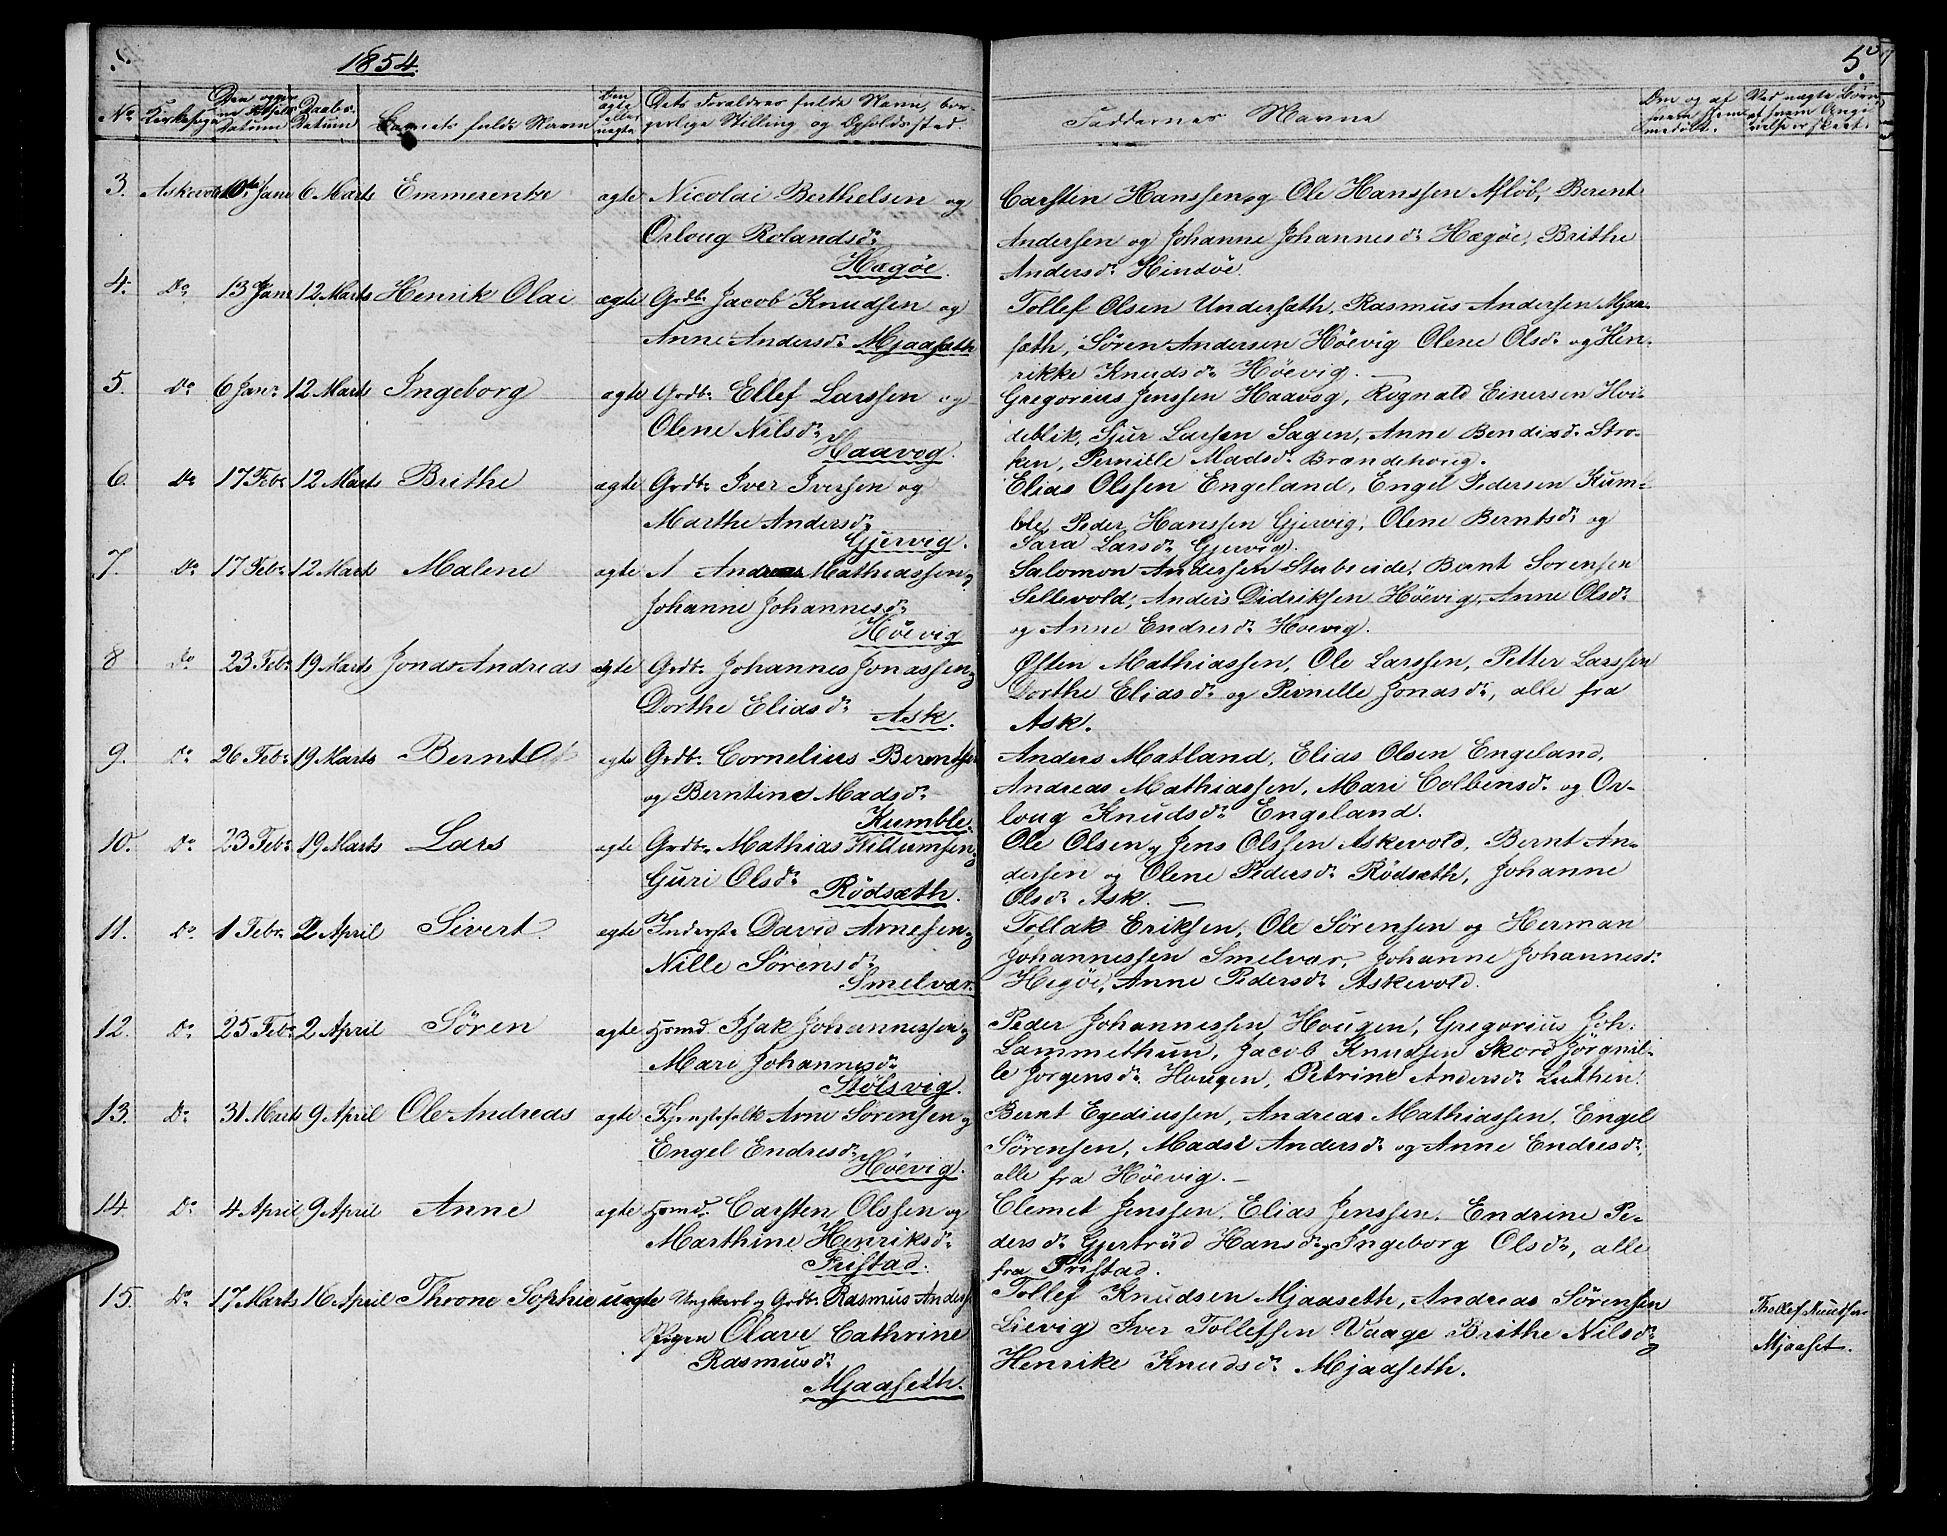 1854.
5.
No Kirkesogn Datum Daabs Datum Barnets fulde Navn ægte eller uægte Dets Forældres fulde Navn, bor-
gerlige Stilling og Opholdssted.
Faddernes Navne
3. Askevold 10de Janr 6 Marts Emmerentze ægte Nicolai Berthelsen og
Orloug Rolandsdr
Hægøe.
Carsten Hanssen og Ole Hanssen Afløb, Berent
Andersen og Johanne Johannesdr Hægøe, Brithe
Andersdr Hindøe.
4. Do 13 Janr 12 Marts Henrik Olai ægte Grdbr Jacob Knudsen og
Anne Andersdr Mjaaseth
Tollef Olsen Undersæth, Rasmus Andersen Mjaa-
sæth, Søren Andersen Høevig Olene Olsdr og Hen-
rikke Knudsdr Høevig.
5. Do 6 Janr 12 Marts Ingeborg ægte Grdbr Ellef Larssen og
Olene Nilsdr
Haavog.
Gregorius Jenssen Haavog, Rognald Einersen Hvi-
deblik, Sjur Larsen Sagen, Anne Bendixdr Stro-
ken, Pernille Madsdr Brandehovig.
6. Do 17 Febr 12 Marts Brithe ægte Grdbr Iver Iversen og
Marthe Andersdr
Gjervig.
Elias Olssen Engeland, Engel Pedersen Kum-
ble, Peder Hanssen Gjervig, Olene Berntsdr og
Sara Larsdr Gjervig.
7. Do 17 Febr 12 Marts Malene ægte Andreas Mathiassen og
Johanne Johannesdr
Høevig
Salomon Andersen Stubseide, Bernt Sørensen
Sellevold, Anders Didriksen Høevig, Anne Olsdr
og Anne Endresdr Høevig.
8 Do 23 Febr 19 Marts Jonas Andreas ægte Grdbr Johannes Jonassen og
Dorthe Eliasdr Ask.
Østen Mathiassen, Ole Larssen, Petter Larssen
Dorthe Eliasdr og Pernille Jonasdr, alle fra
Ask.
9. Do 26 Febr 19 Marts Bernt ægte Grdbr Cornelius Berentsen
og Berntine Madsdr
Kumble.
Anders Matland, Elias Olsen Engeland,
Andreas Mathiassen, Mari Colbensdr og Or-
loug Knudsdr Engeland.
10. Do 23 Febr 19 Marts Lars ægte Grdbr Mathias Willumsen og
Guri Olsdr Rødsæth.
Ole Olsen og Jens Olssen Askevold, Bernt An-
dersen og Olene Pedersdr Rødsæth, Johanne
Olsdr Ask.
11. Do 1 Febr 2 April Sivert ægte Inderste David Arnesen og
Nille Sørensdr
Smelvær.
Tollak Eriksen, Ole Sørensen og Herman
Johannessen Smelvær, Johanne Johannesdr
Hegøe, Anne Pedersdr Askevold.
12. Do 25 Febr 2 April Søren ægte Hsmd. Isak Johannessen og
Mari Johannesdr
Stølsvig.
Peder Johannessen Hougen, Gregorius Joh.
Lammethun, Jacob Knudsen Skord Jørgnil-
le Jørgensdr Hougen, Petrine Andersdr Luthen.
13. Do 31 Marts 9 April Ole Andreas ægte Tjenestefolk Arne Sørensen og
Engel Endresdr
Høevig.
Bernt Egediussen, Andreas Mathiassen, Engel
Sørensen, Madsi Andersdr og Anne Endresdr,
alle fra Høevig.
14. Do 4 April 9 April Anne ægte Hsmd. Carsten Olssen og
Marthine Henriksdr
Fristad.
Clemet Jenssen, Elias Jenssen, Endrine Pe-
dersdr Gjertrud Hansdr og Ingeborg Olsdr, alle
fra Fristad.
15. Do 17 Marts 16 April Throne Sophie uægte Ungkarl og Grdbr Rasmus Anders
Pigen Olave Cathrine
Rasmusdr
Mjaaseth.
Tollef Knudsen Mjaaseth, Andreas Sørensen
Lievig Iver Tollefsen Vaage Brithe Nilsdr og
Henrike Knudsdr Mjaaseth.
Thollef Knudsen
Mjaaset.